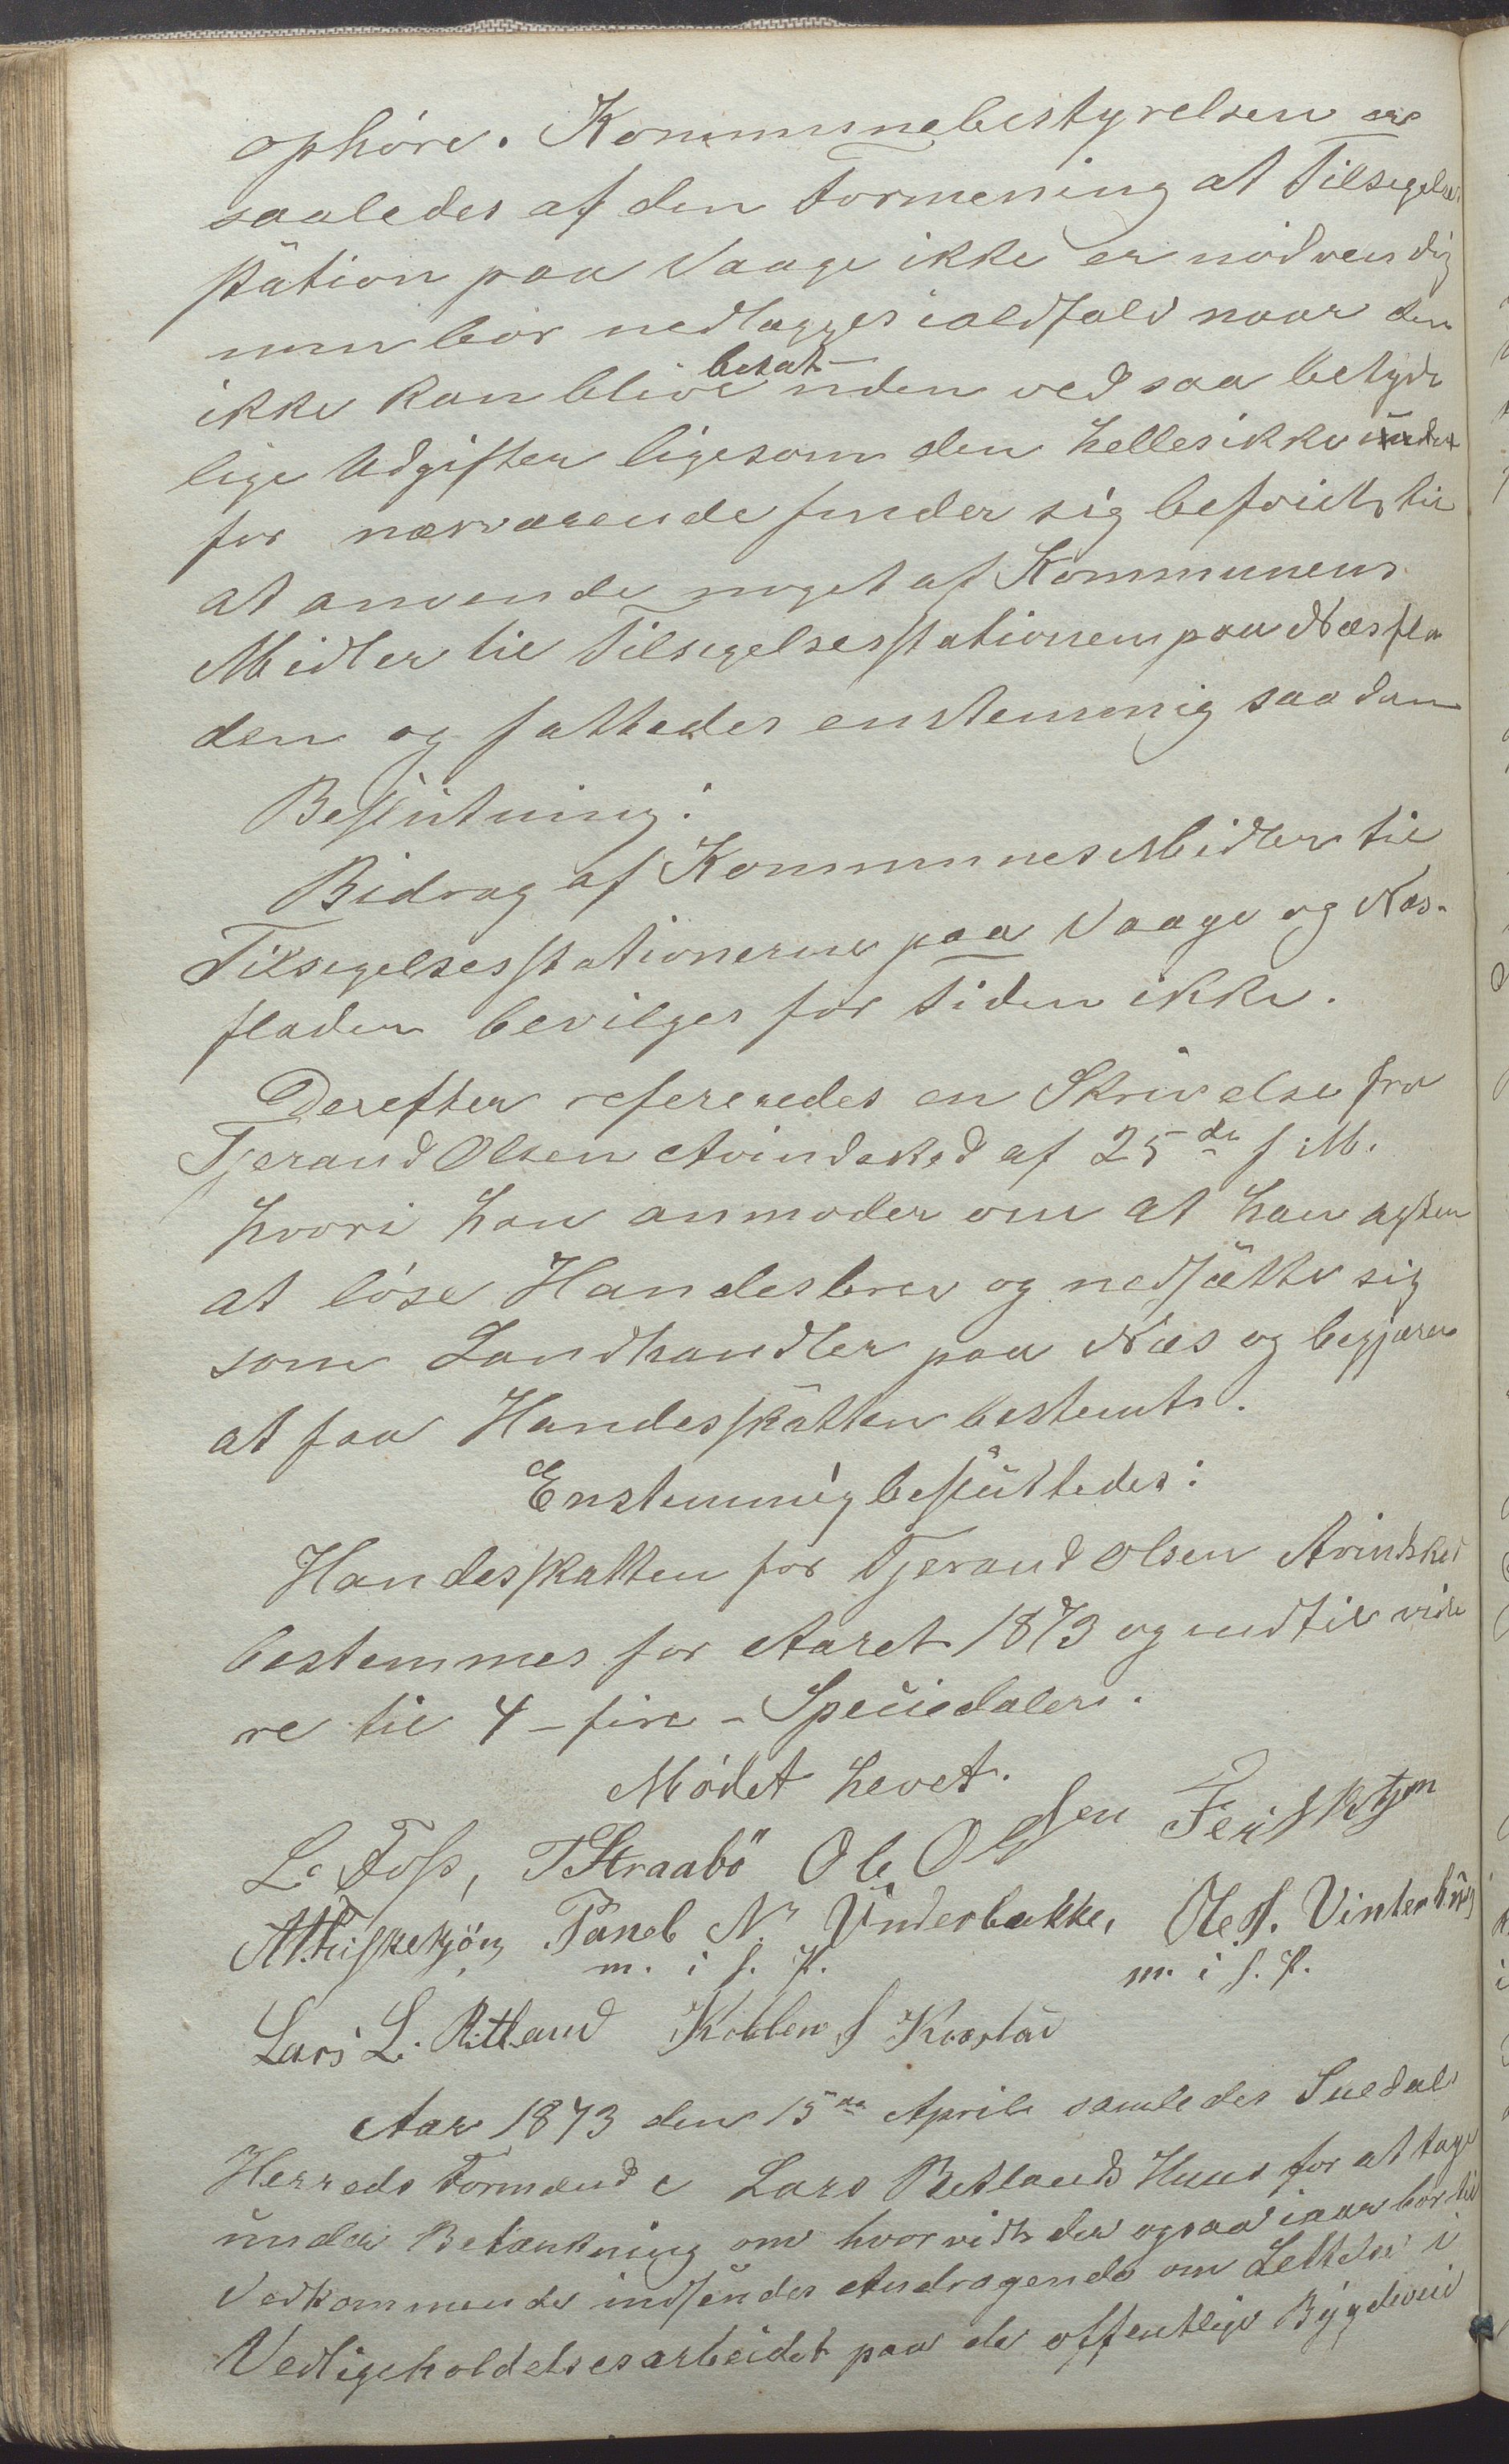 ophøre. Kommunebestyrelsen er
saaledes af den Formening at Tilsigelses
station paa Vaage ikke er nødvendig
men bør nedlægges ialdfald naar den
ikke kan blive besat uden ved saa betyde
lige Udgifter ligesom den hellesikke
for nærværende finder sig beføiet til
at anvende noget af Kommunens
Midler til Tilsigelsesstationen paa Næsfla
den og fattedes enstemmig saadan
Beslutning:
Bidrag af Kommunes Midler til
Tilsigelsesstationerne paa Vaage og Næs-
fladen bevilges for Tiden ikke.
Derefter refereredes en Skrivelse fra
Tjerand Olsen Avindsked af 25de f. M.
hvori han anmoder om at han agter
at løse Handesbrev og nedsætte sig
som Landhandler paa Næs og begjærer
at faa Handesskatten bestemt.
Enstemmig besluttedes:
Handesskatten for Tjerand Olsen Avindsked
bestemmes for Aaret 1873 og indtil vide
re til 4 - fire - Speciedaler.
Mødet hevet.
L. Foss, T Straabø Ole Olsen Fisketjøn
A. Fisketjøn, N. Underbakke, Ole S. Vinterhus
m. i f. P. m. i f. P.
Lars L. Ritland Kolben S Kvæstad
Aar 1873 den 15de April samledes Suldals
Herreds Formænd i Lars Ritlands Huus for at tage
under Betænkning om hvorvidt der ogsaa iaar bør til
Vedkommende indsendes Andragende om Lettelse i
Vedligeholdelsesarbeidet paa de offentlige Bygdeveie